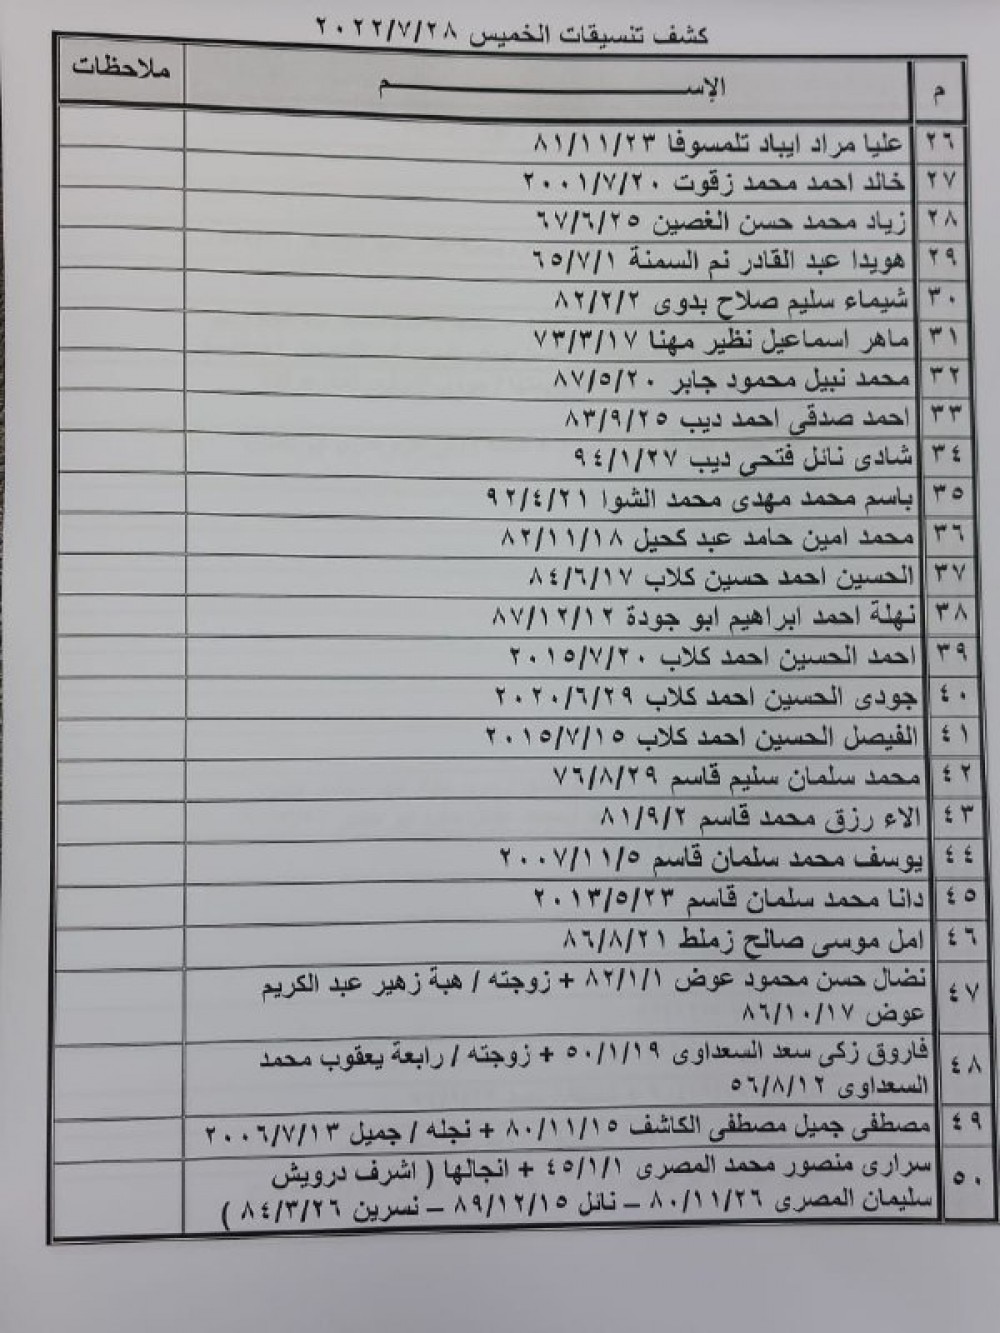 كشف تنسيقات الخميس ٢٠٢٢/٧/٢٨
م الإســــــم ملاحظات
٢٦ عليا مراد ايباد تلمسوفا ٨١/١١/٢٣
٢٧ خالد احمد محمد زقوت ٢٠٠١/٧/٢٠
٢٨ زياد محمد حسن الغصين ٦٧/٦/٢٥
٢٩ هويدا عبد القادر نم السمنة ٦٥/٧/١
٣٠ شيماء سليم صلاح بدوى ٨٢/٢/٢
٣١ ماهر اسماعيل نظير مهنا ٧٣/٣/١٧
٣٢ محمد نبيل محمود جابر ٨٧/٥/٢٠
٣٣ احمد صدقى احمد ديب ٨٣/٩/٢٥
٣٤ شادى نائل فتحى ديب ٩٤/١/٢٧
٣٥ باسم محمد مهدى محمد الشوا ٩٢/٤/٢١
٣٦ محمد امين حامد عبد كحيل ٨٢/١١/١٨
٣٧ الحسين احمد حسين كلاب ٨٤/٦/١٧
٣٨ نهلة احمد ابراهيم ابو جودة ٨٧/١٢/١٢
٣٩ احمد الحسين احمد كلاب ٢٠١٥/٧/٢٠
٤٠ جودى الحسين احمد كلاب ٢٠٢٠/٦/٢٩
٤١ الفيصل الحسين احمد كلاب ٢٠١٥/٧/١٥
٤٢ محمد سلمان سليم قاسم ٧٦/٨/٢٩
٤٣ الاء رزق محمد قاسم ٨١/٩/٢
٤٤ يوسف محمد سلمان قاسم ٢٠٠٧/١١/٥
٤٥ دانا محمد سلمان قاسم ٢٠١٣/٥/٢٣
٤٦ امل موسى صالح زملط ٨٦/٨/٢١
٤٧ نضال حسن محمود عوض ٨٢/١/١ + زوجته / هبة زهير عبد الكريم
عوض ٨٦/١٠/١٧
٤٨ فاروق زكى سعد السعداوى ٥٠/١/١٩ + زوجته / رابعة يعقوب محمد
السعداوى ٥٦/٨/١٢
٤٩ مصطفى جميل مصطفى الكاشف ٨٠/١١/١٥ + نجله / جميل ٢٠٠٦/٧/١٣
٥٠ سرارى منصور محمد المصرى ٤٥/١/١ + انجالها ( اشرف درويش
سليمان المصرى ٨٠/١١/٢٦ – نائل ٨٩/١٢/١٥ – نسرين ٨٤/٣/٢٦ )